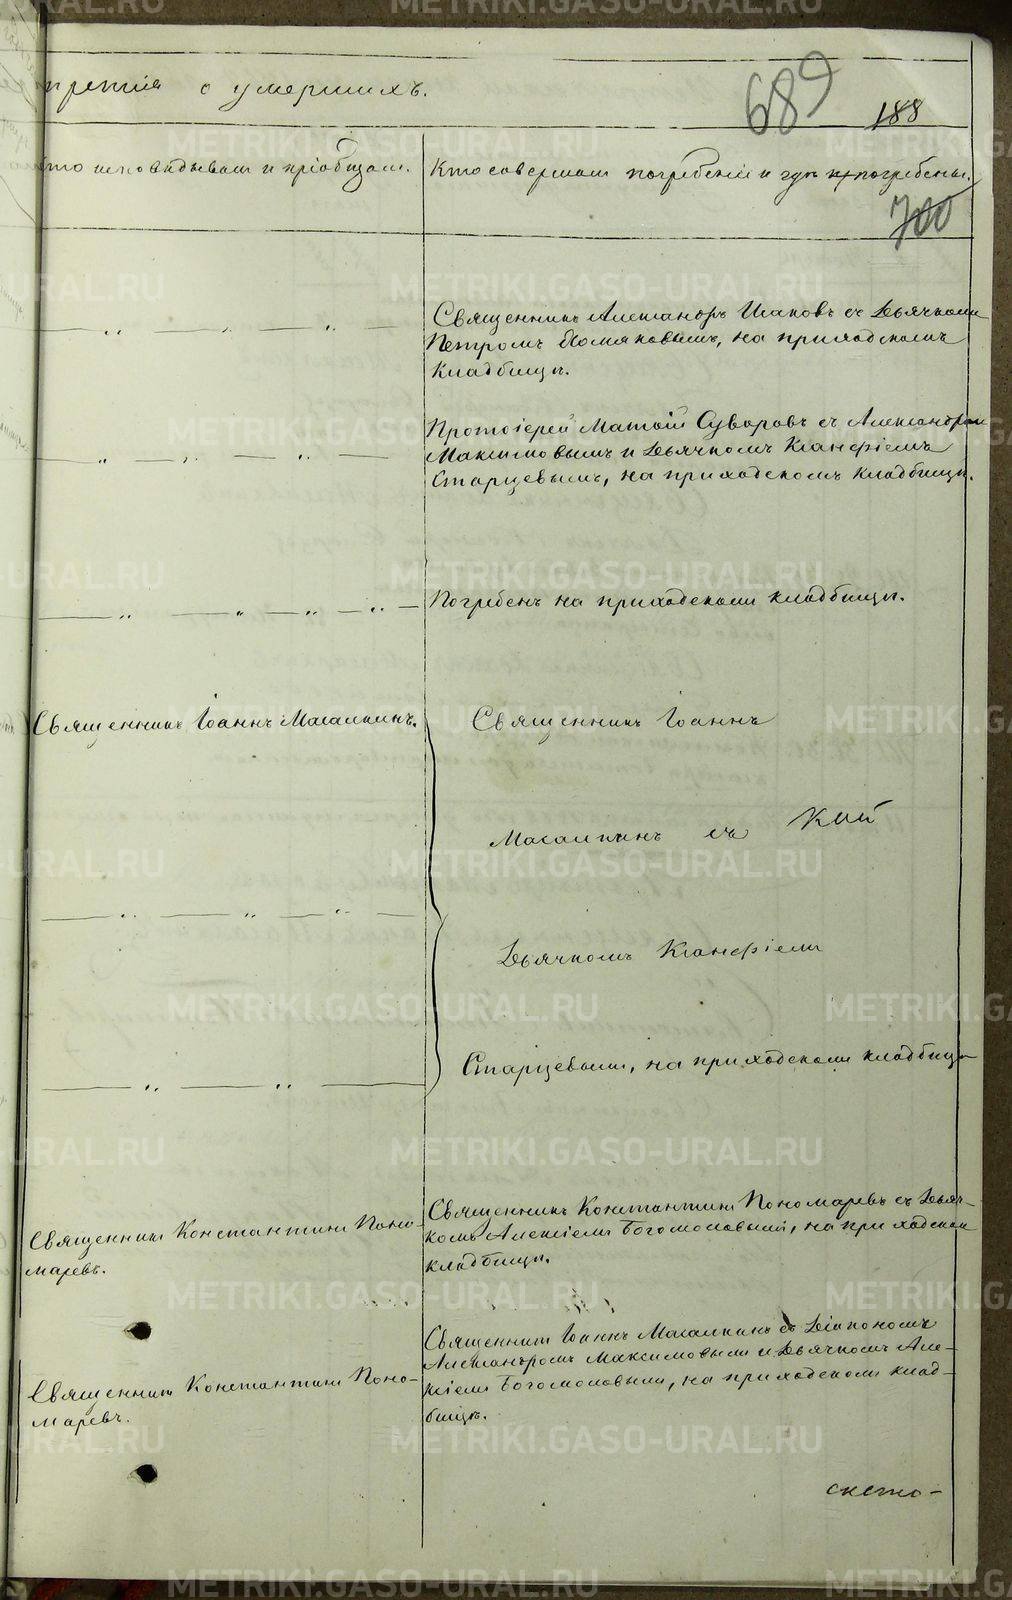 третiя о умершихъ.
689
188
Кто исповѣдывал и прiобщал.
Кто совершал погребенiе и гдѣ погребены.
700
Священникъ Александръ Исаковъ съ Дьячкомъ
Петромъ Хомяковымъ, на приходскомъ
кладбищѣ.
Протоiерей Матѳiй Суворовъ съ Александром
Максимовымъ и Дьячкомъ Ксанфiемъ
Старцевымъ, на приходскомъ кладбищѣ.
Погребенъ на приходскомъ кладбищѣ.
Священникъ Iоаннъ Масалкинъ.
Священникъ Iоаннъ
Масалкинъ съ
Дьячкомъ Ксанфiемъ
Старцевымъ, на приходскомъ кладбищѣ
Священникъ Константинъ Поно-
маревъ.
Священникъ Константинъ Пономаревъ съ Дьяч-
комъ Алексiемъ Богомоловымъ, на приходском
кладбищѣ.
Священникъ Константинъ Поно-
маревъ.
Священникъ Iоаннъ Масалкинъ съ Дiакономъ
Александромъ Максимовымъ и Дьячкомъ Але-
ксiемъ Богомоловымъ, на приходскомъ клад-
бищѣ.
METRIKI.GASO-URAL.RU